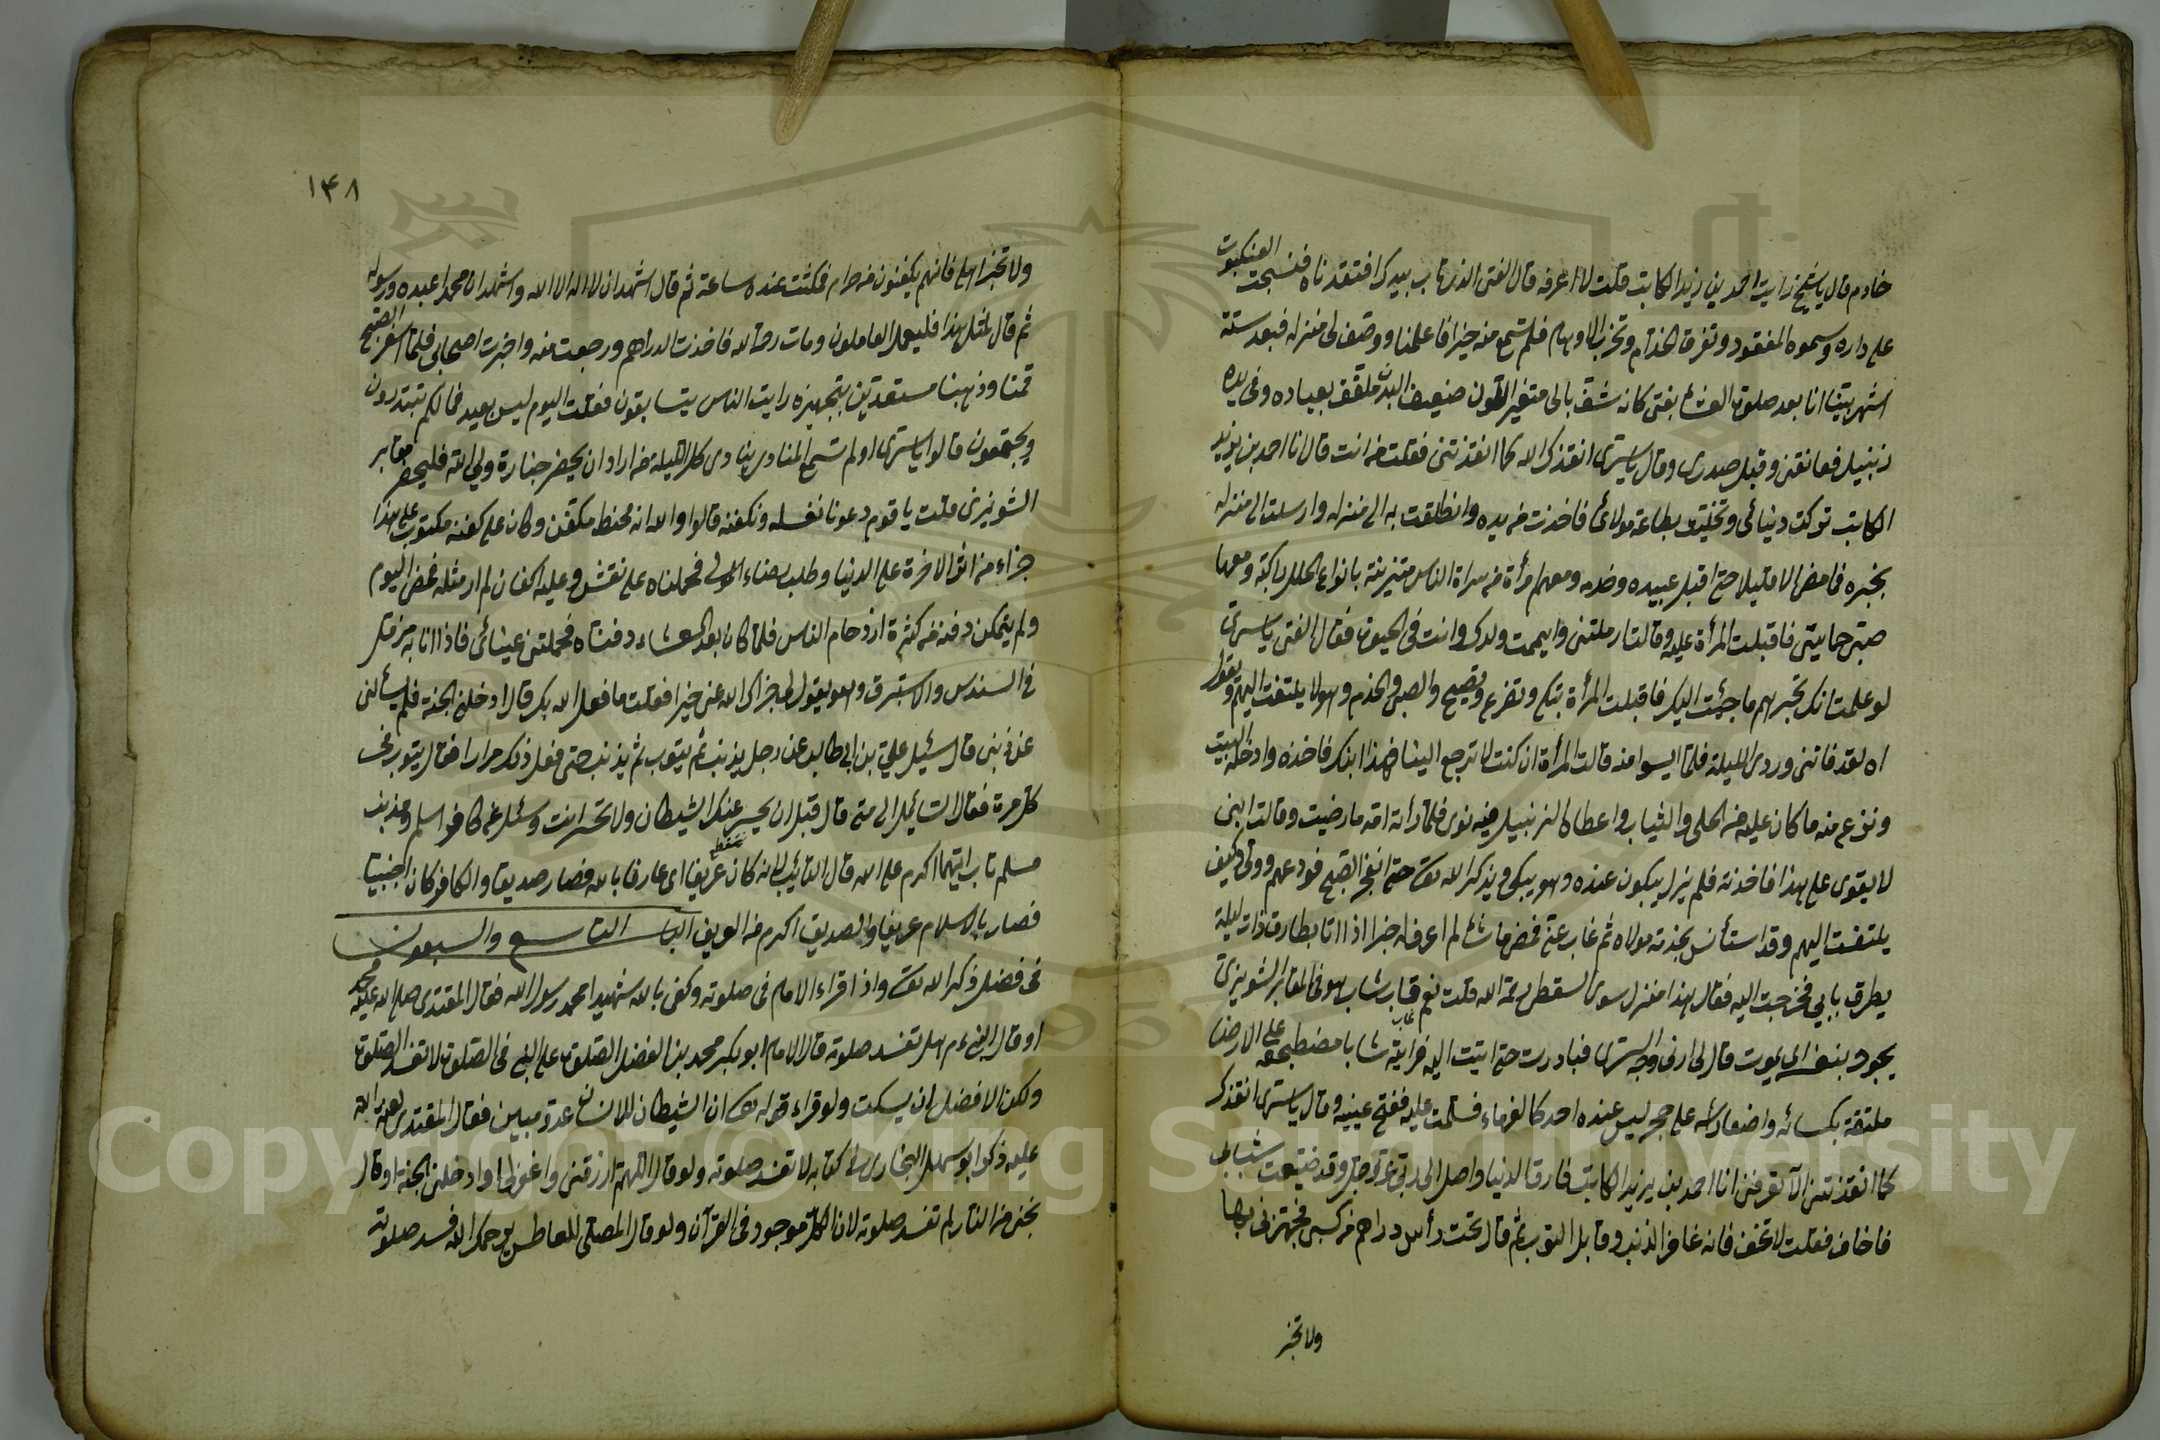 خادم قال يا شيخ رايت احمد بن يزيد الكاتب قلت لا اعرفه قال الفتى الذى تاب بيدك افتقدناه فنسجت العنكبوت
على داره وسموه المفقود وتفرق الخدام وتخرب فلم نسمع منه خبرا فاعلمنا ووصف لى منزله فبعد ستة
اشهر بينا انا بعد صلوة العشاء بفتى كانه شق بالى متغير اللون ضعيف البدن ملفف بعباده وفى يده
زنبيل فعانقنى وقبل صدرى وقال يا سرى انقذك الله كما انقذتنى فقلت من انت قال انا احمد بن يزيد
الكاتب تركت دنيائى وتخليت بطاعة مولائى فاخذت من يده وانطلقت به الى منزله وارسلت الى منزله
بخبره فما مضى الا قليلا حتى اقبل عبيده وخدمه ومعهم امرأة من سراة الناس متزينة بانواع الحلل راكبة ومعها
فاقبلت المرأة عليه وقالت ارملتنى وايتمت ولدك وانت فى الحيوة فقال الفتى يا سرى
لو علمت انك تخبرهم ما جئت اليك فاقبلت المرأة تبكى وتفزع وتصيح والصبى والخدم وهو لا يلتفت اليهم ويقول
اه لقد فاتنى وردى الليلة فلما ايسوا منه قالت المرأة ان كنت لا ترجع الينا فهذا ابنك فاخذه وادخله البيت
ونزع منه ما كان عليه من الحلى والثياب واعطاه الزنبيل فيه نوى فلما رأته امه ما رضيت وقالت ابنى
لا يقوى على هذا فاخذته فلم يزل يبكون عنده وهو يبكى ويذكر الله تعالى حتى انفجر الصبح فودعهم وولى وكيف
يلتفت اليهم وقد استأنس بخدمة مولاه ثم غاب عنى فمضى ما شاء لم اعرف له خبرا اذا انا بطارق ذات ليلة
يطرق بابى فخرجت اليه فقال هذا منزل سرى السقطى رحمة الله قلت نعم قال شاب هو فى المقابر الشونيزى
يجود بنفسه اى يموت قال لى ارنى وجه السرى فبادرت حتى اتيت اليه فرايته شابا مضطجعا على الارض
ملتفة بكسائه واضعا رأسه على حجر ليس عنده احد كالغرماء فسلمت عليه ففتح عينيه وقال يا سرى انقذك
كما انقذتنى الا تعرفنى انا احمد بن يزيد الكاتب فارق الدنيا واصل الى ربى عز وجل وقد ضيعت شبابى
فاخاف فقلت لا تخف فانه غافر الذنب وقابل التوب ثم قال تحت رأسى دراهم من كسبى فجهزنى بها
ولا تخبر
١٤٨
ولا تخبر اهلى فانهم يكفنون من حرام فمكثت عنده ساعة ثم قال اشهد ان لا اله الا الله واشهد ان محمدا عبده ورسوله
ثم قال لمثل هذا فليعمل العاملون ومات رحمة الله فاخذت الدراهم ورجعت منه واخبرت اصحابى فلما اسفر الصبح
قمنا وذهبنا مستعدين بتجهيزه رايت الناس يتسابقون فقلت اليوم ليس بعيد فما لكم تبتدرون
ويجتمعون قالوا يا سرى اولم تسمع المنادى ينادى كل الليلة من اراد ان يحضر جنازة ولى الله فليحضر مقابر
الشونيزى قلت يا قوم دعونا نغسله ونكفنه قالوا والله انه محنط مكفن وكان على كفنه مكتوب على هذا
جزاء من اثر الاخرة على الدنيا وطلب رضاء المولى فحملناه على نعش وعليه اكفان لم ار مثله فمضى اليوم
ولم يتمكن دفنه من كثرة ازدحام الناس فلما كان بعد العشاء دفناه فحملتنى عينائى فاذا انا به يرفل
فى السندس والاستبرق وهو يقول لى جزاك الله عنى خيرا فقلت ما فعل الله بك قال ادخلنى الجنة فلم يسألنى
عن ذنبى قال سئيل على بن ابى طالب عن رجل يذنب ثم يتوب ثم يذنب حتى فعل ذلك مرارا فقال يتوب
كل مرة فقال السائل الى متى قال قبل ان يحسر عنك الشيطان ولا تحسر انت وسئل عن كافر اسلم ومذنب
مسلم تاب ايتهما اكرم على الله قال التائب لانه كان عريفا اى عارفا بالله فصار صديقا والكافر كان اجنبيا
فصار بالاسلام عريفا والصديق اكرم من العريف الباب التاسع والسبعون
فى فضل ذكر الله تعالى واذا قراء الامام فى صلوته وكفى بالله شهيدا محمد رسول الله فقال المقتدى صلى الله عليه
او قال النبى عم هل تفسد صلوته قال الامام ابو بكر محمد بن الفضل الصلوة على النبى فى الصلوة لا تفسد الصلوة
ولكن الافضل ان يسكت ولو قراء قوله تعالى ان الشيطان للانسان عدو مبين فقال المقتدى لعنة الله
عليه ذكر ابو سهل البخارى فى كتابه لا تفسد صلوته ولو قال اللهم ارزقنى واغفر لى وادخلنى الجنة او قال
نجنى من النار لم تفسد صلوته لان الكل موجود فى القرآن ولو قال المصلى للعاطس يرحمك الله فسد صلوته
Copyright © King Saud University
1957